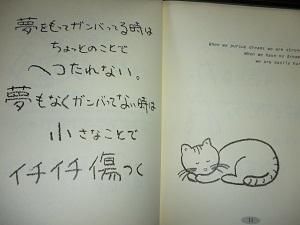 夢をもってガンバってる時は
ちょっとのことで
ヘコたれない。
夢もなくガンバってない時は
小さなことで
イチイチ傷つく
When we pursue dreams we are stron
When we have no dream
we are easily hur